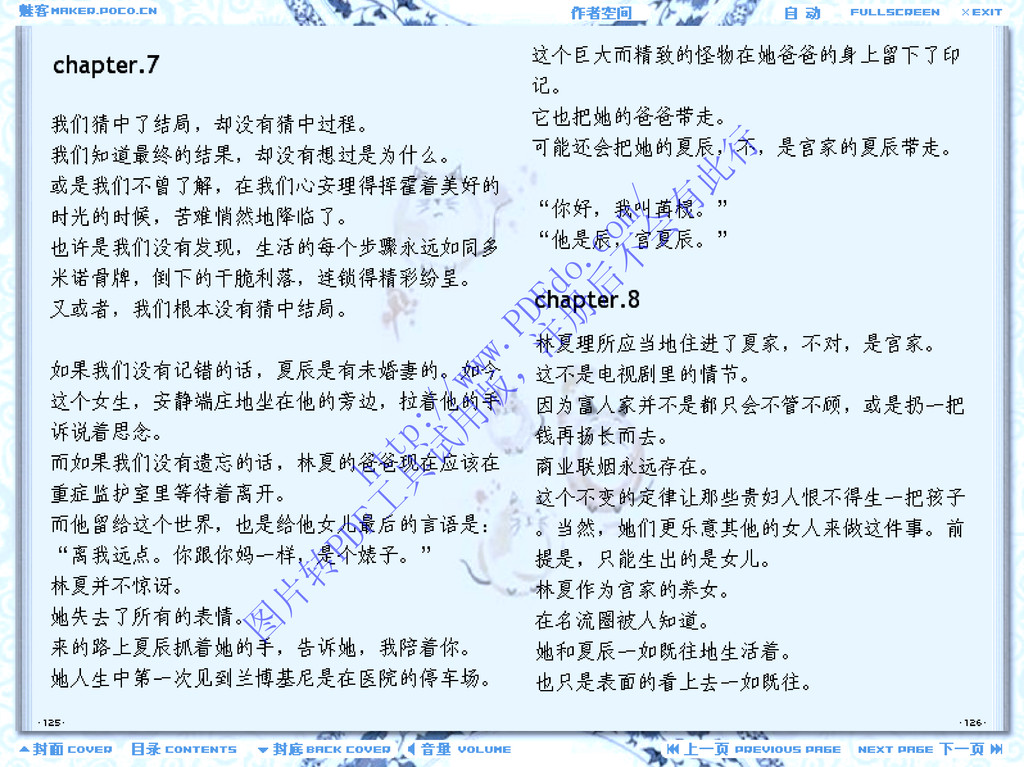 魅客MAKER.POCO.CN
作者空间
自 动
FULLSCREEN
×EXIT
chapter.7
我们猜中了结局，却没有猜中过程。
我们知道最终的结果，却没有想过是为什么。
或是我们不曾了解，在我们心安理得挥霍着美好的
时光的时候，苦难悄然地降临了。
也许是我们没有发现，生活的每个步骤永远如同多
米诺骨牌，倒下的干脆利落，连锁得精彩纷呈。
又或者，我们根本没有猜中结局。
如果我们没有记错的话，夏辰是有未婚妻的。如今
这个女生，安静端庄地坐在他的旁边，拉着他的手
诉说着思念。
而如果我们没有遗忘的话，林夏的爸爸现在应该在
重症监护室里等待着离开。
而他留给这个世界，也是给他女儿最后的言语是：
“离我远点。你跟你妈一样，是个婊子。”
林夏并不惊讶。
她失去了所有的表情。
来的路上夏辰抓着她的手，告诉她，我陪着你。
她人生中第一次见到兰博基尼是在医院的停车场。
·125·
这个巨大而精致的怪物在她爸爸的身上留下了印
记。
它也把她的爸爸带走。
可能还会把她的夏辰，不，是宫家的夏辰带走。
“你好，我叫茧
。”
“他是辰，宫夏辰。”
chapter.8
林夏理所应当地住进了夏家，不对，是宫家。
这不是电视剧里的情节。
因为富人家并不是都只会不管不顾，或是扔一把
钱再扬长而去。
商业联姻永远存在。
这个不变的定律让那些贵妇人恨不得生一把孩子
。当然，她们更乐意其他的女人来做这件事。前
提是，只能生出的是女儿。
林夏作为宫家的养女。
在名流圈被人知道。
她和夏辰一如既往地生活着。
也只是表面的看上去一如既往。
·126·
http://www.PDFdo.com/
图片转PDF工具试用版，注册后不会有此行
封面 COVER
目录 CONTENTS
封底 BACK COVER
音量 VOLUME
上一页 PREVIOUS PAGE
NEXT PAGE 下一页